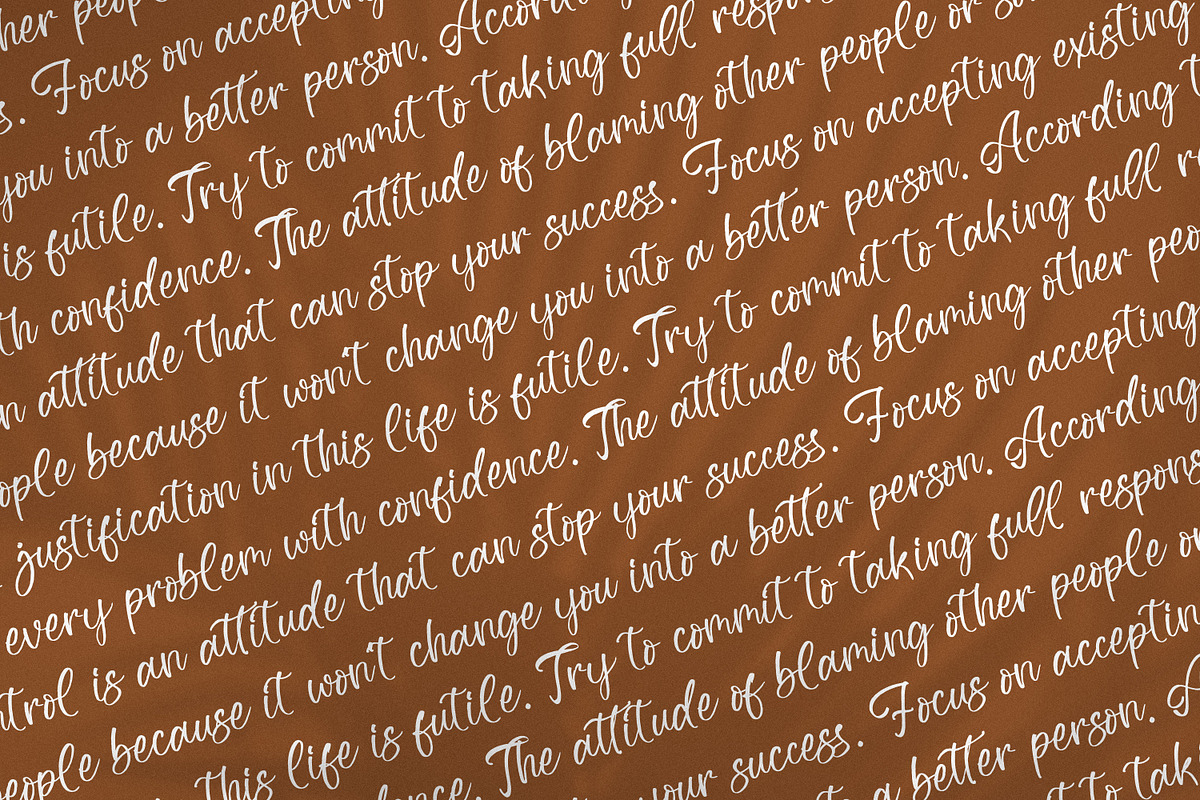 her people
s. Focus on accepting
you into a better person. Accord
is futile. Try to commit to taking full respon
th confidence. The attitude of blaming other people or
n attitude that can stop your success. Focus on accepting existing
ople because it won't change you into a better person. According t
justification in this life is futile. Try to commit to taking full r
every problem with confidence. The attitude of blaming other peo
ntrol is an attitude that can stop your success. Focus on accepting
people because it won't change you into a better person. According
this life is futile. Try to commit to taking full respons
dence. The attitude of blaming other people or
your success. Focus on acceptin
a better person. A
to tak